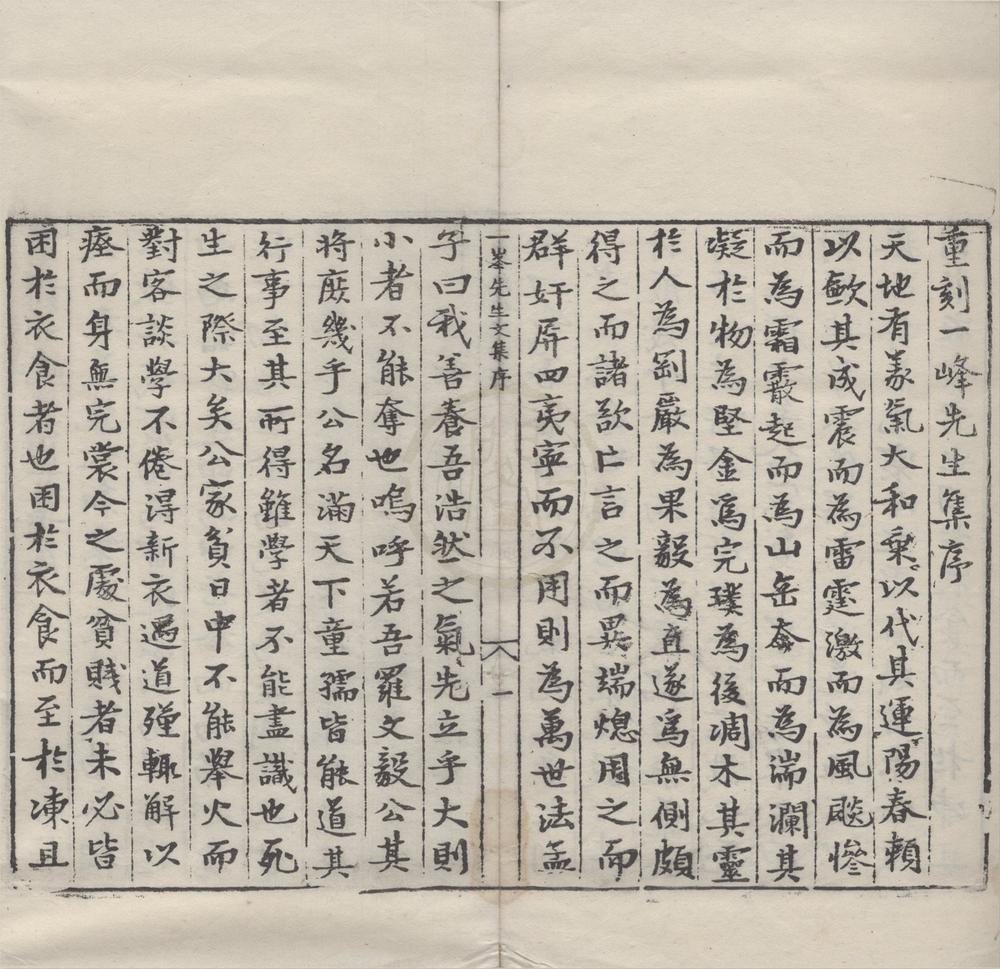 重刻一峰先生集序
天地有義氣大和乗以代其運陽春頼
以歛其成震而為雷霆激而為風颷慘
而為霜霰起而為山岳奔而為湍瀾其
凝於物為堅金為完璞為後凋木其靈
於人為剛嚴為果毅為直遂為無側頗
得之而諸欲亡言之而異端熄用之而
群奸屏四夷寧而不用則為萬世法孟
一峯先生文集序
一
子曰我善養吾浩然之氣先立乎大則
小者不能奪也嗚呼若吾羅文毅公其
將庶幾乎公名滿天下童孺皆能道其
行事至其所得雖學者不能盡識也死
生之際大矣公家貧日中不能舉火而
對客談學不倦得新衣遇道殣輙解以
瘞而身無完裳今之處貧賤者未必皆
困於衣食者也困於衣食而至於凍且